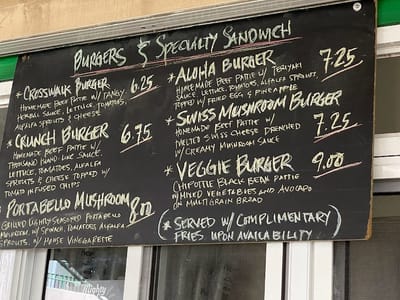 BURGERS & SPECIALTY SANDWICH
* CROSSWALK BURGER 6.25
HOMEMADE BEEF PATTIE W/ TANGY
HERBAL SAUCE, LETTUCE, TOMATOES,
ALFALFA SPROUTS & CHEESE
* CRUNCH BURGER 6.75
HOMEMADE BEEF PATTIE W/
THOUSAND ISLAND LIKE SAUCE
LETTUCE, TOMATOES, ALFALFA
SPROUTS & CHEESE TOPPED W/
INFUSED CHIPS
PORTABELLO MUSHROOM 8.00
GRILLED LIGHTLY SEASONED PORTABELLO
MUSHROOM, W/ SPINACH, TOMATOES, ALFALFA
SPROUTS, W/ HOUSE VINEGARETTE
* ALOHA BURGER 7.25
HOMEMADE BEEF PATTIE W/ TERIYAKI
SAUCE, LETTUCE, TOMATOES, ALFALFA SPROUTS,
TOPPED W/ FRIED EGG & PINEAPPLE
* SWISS MUSHROOM BURGER
HOMEMADE BEEF PATTIE W/ 7.25
MELTED SWISS CHEESE DRENCHED
W/ CREAMY MUSHROOM SAUCE
* VEGGIE BURGER 9.00
CHIPOTLE BLACK BEAN PATTIE
W/ MIXED VEGETABLES AND AVOCADO
ON MULTIGRAIN BREAD
(* SERVED W/ COMPLIMENTARY
FRIES UPON AVAILABILITY)
Mighty